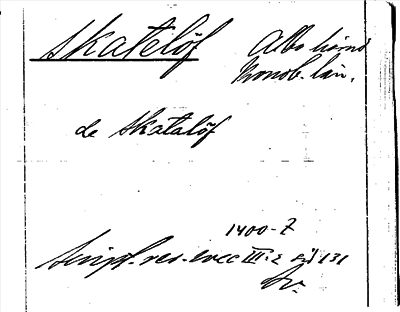 Skatelöf
Albo härad
Kronob. län.
de Skatalöf
1400-t
Script. rer. svec III:2 sid 131